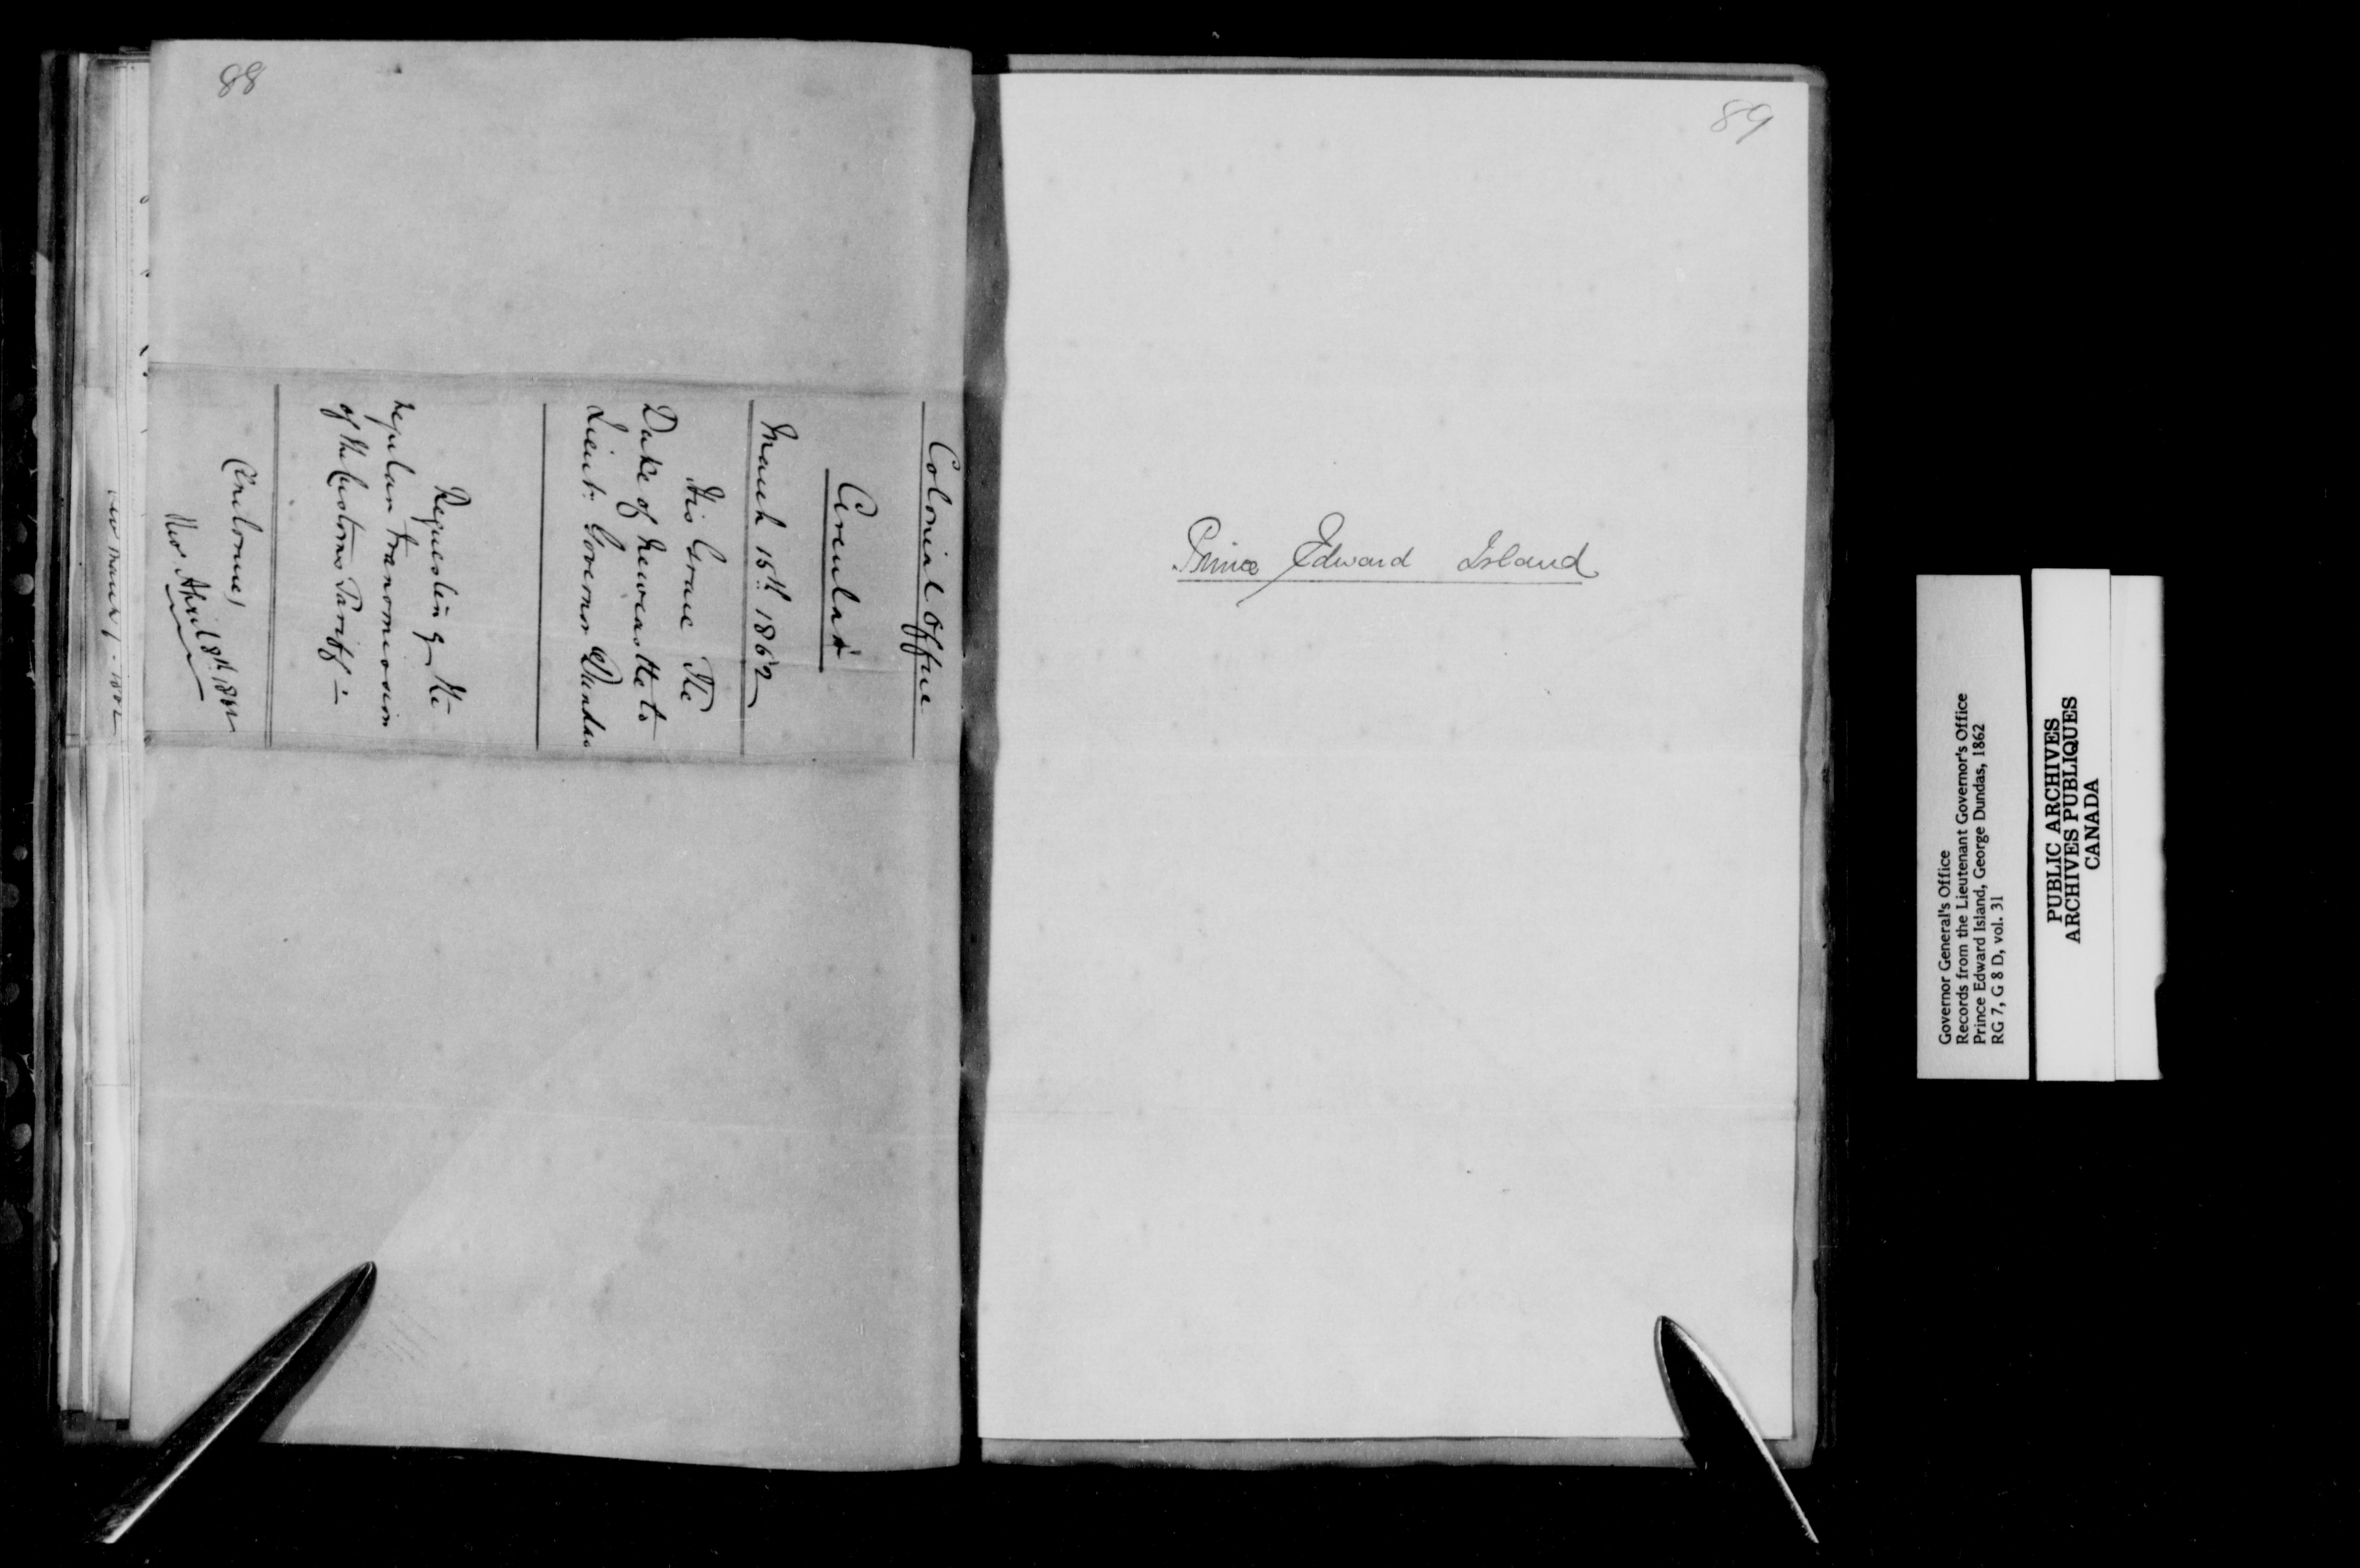 88
Colonial Office
Circular
March 15th 1862
His Grace The
Duke of Newcastle to
Lieut: Governor Dundas
Requesting the
regular transmission
of the Customs Tariff -
April 8th 1862
89
Prince Edward Island
Governor General's Office
Records from the Lieutenant Governor's Office
Prince Edward Island, George Dundas, 1862
RG 7, G 8 D, vol. 31
PUBLIC ARCHIVES
ARCHIVES PUBLIQUES
CANADA